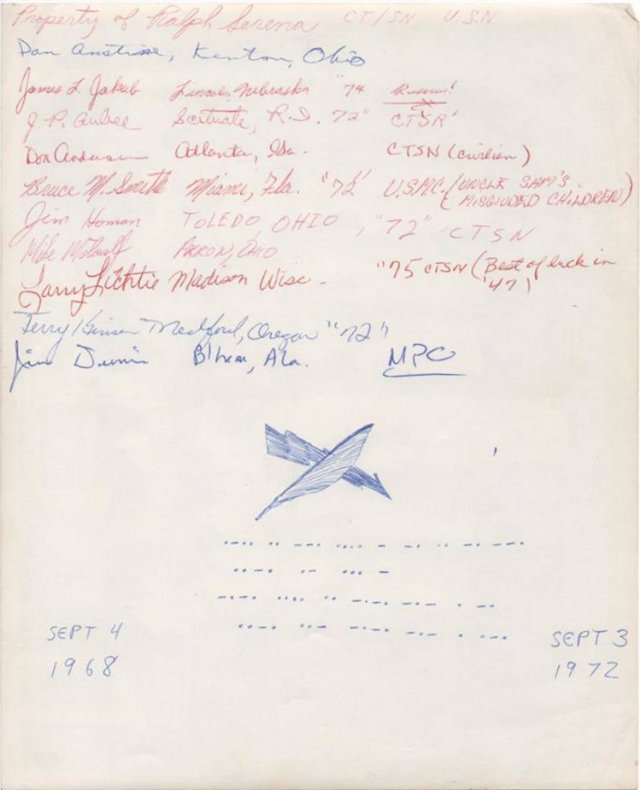 Property of Ralph Serena CT/SN U.S.N.
Dan Kenton, Ohio
James L. Jakub Lincoln, Nebraska "74
J P. Scituate, R.I. 72" CTSR'
Don Anderson Atlanta, Ga. CTSN (civilian)
Bruce M. Smith Miami, Fla. "72" U.S.M.C. (UNCLE SAM'S
MISGUIDED CHILDREN)
Jim Homan TOLEDO OHIO, "72" CTSN
Mike Metcalf AKRON, OHIO
Larry Madison Wisc. "75 CTSN (Best of luck in
'47)
Terry Medford, Oregon "72"
Jim B'ham, Ala. MPC
SEPT 4
1968
SEPT 3
1972